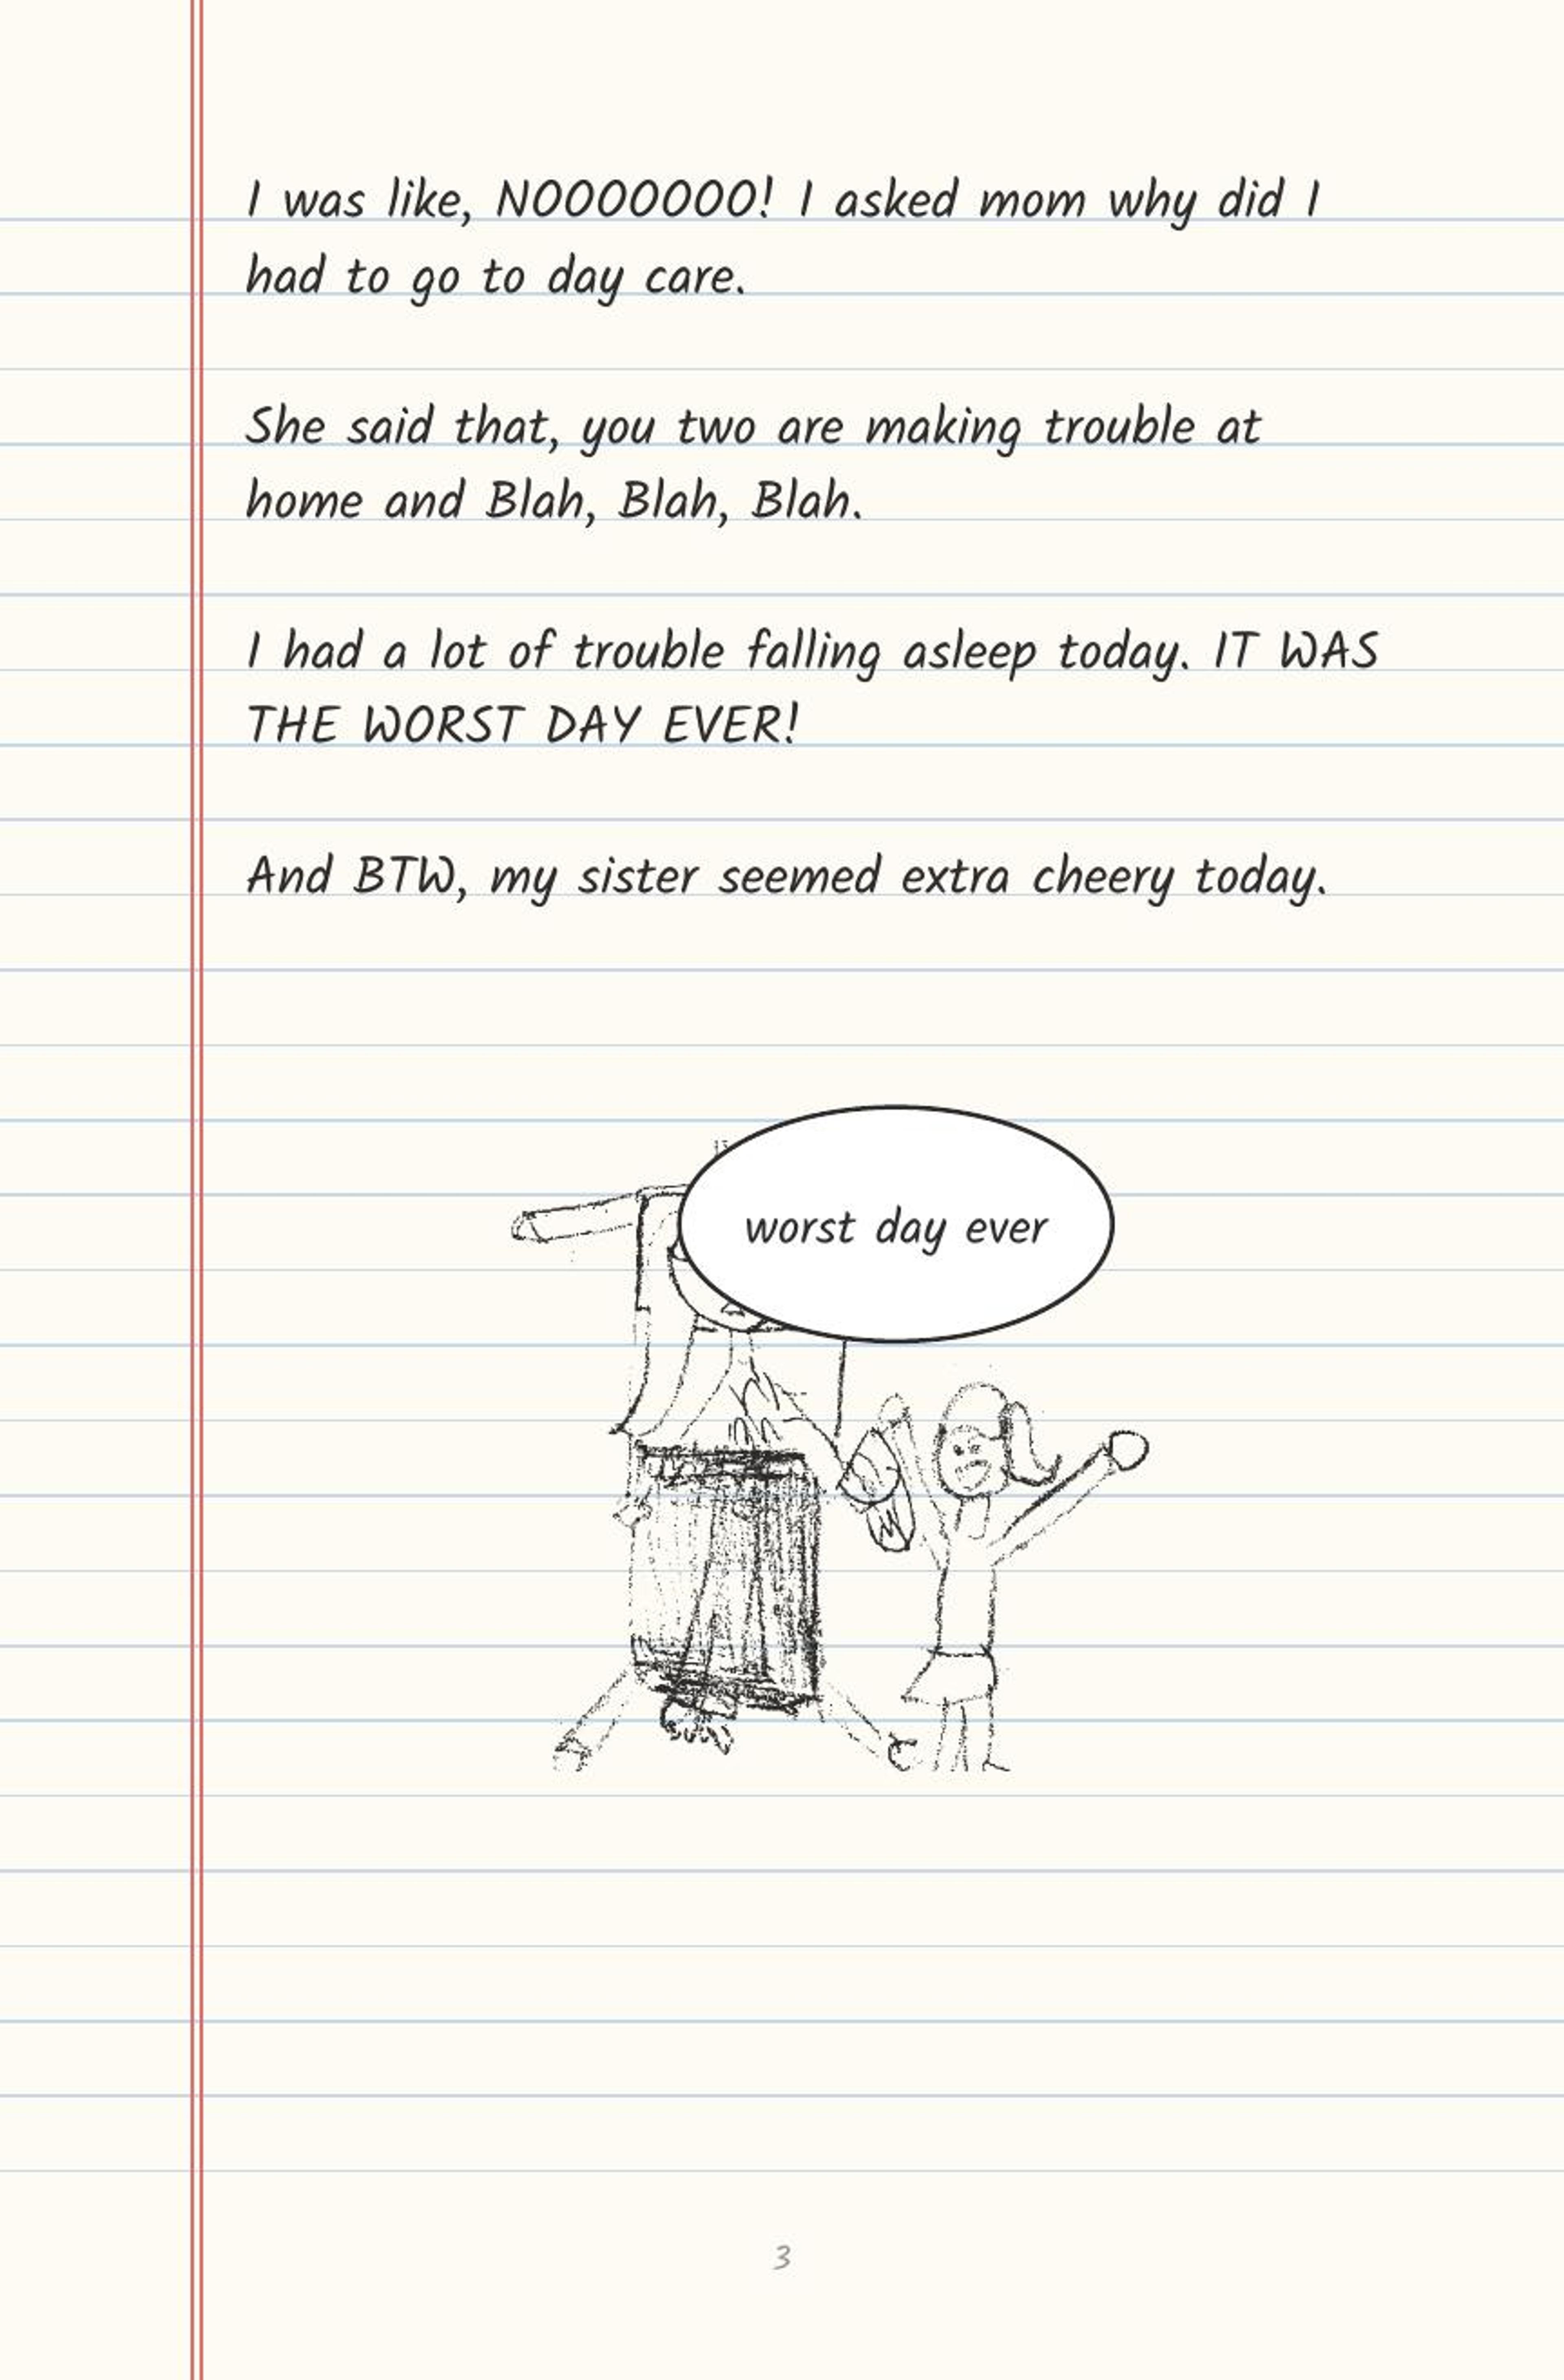 I was like, NOOOOOOO! I asked mom why did I
had to go to day care.
She said that, you two are making trouble at
home and Blah, Blah, Blah.
I had a lot of trouble falling asleep today. IT WAS
THE WORST DAY EVER!
And BTW, my sister seemed extra cheery today.
worst day ever
3